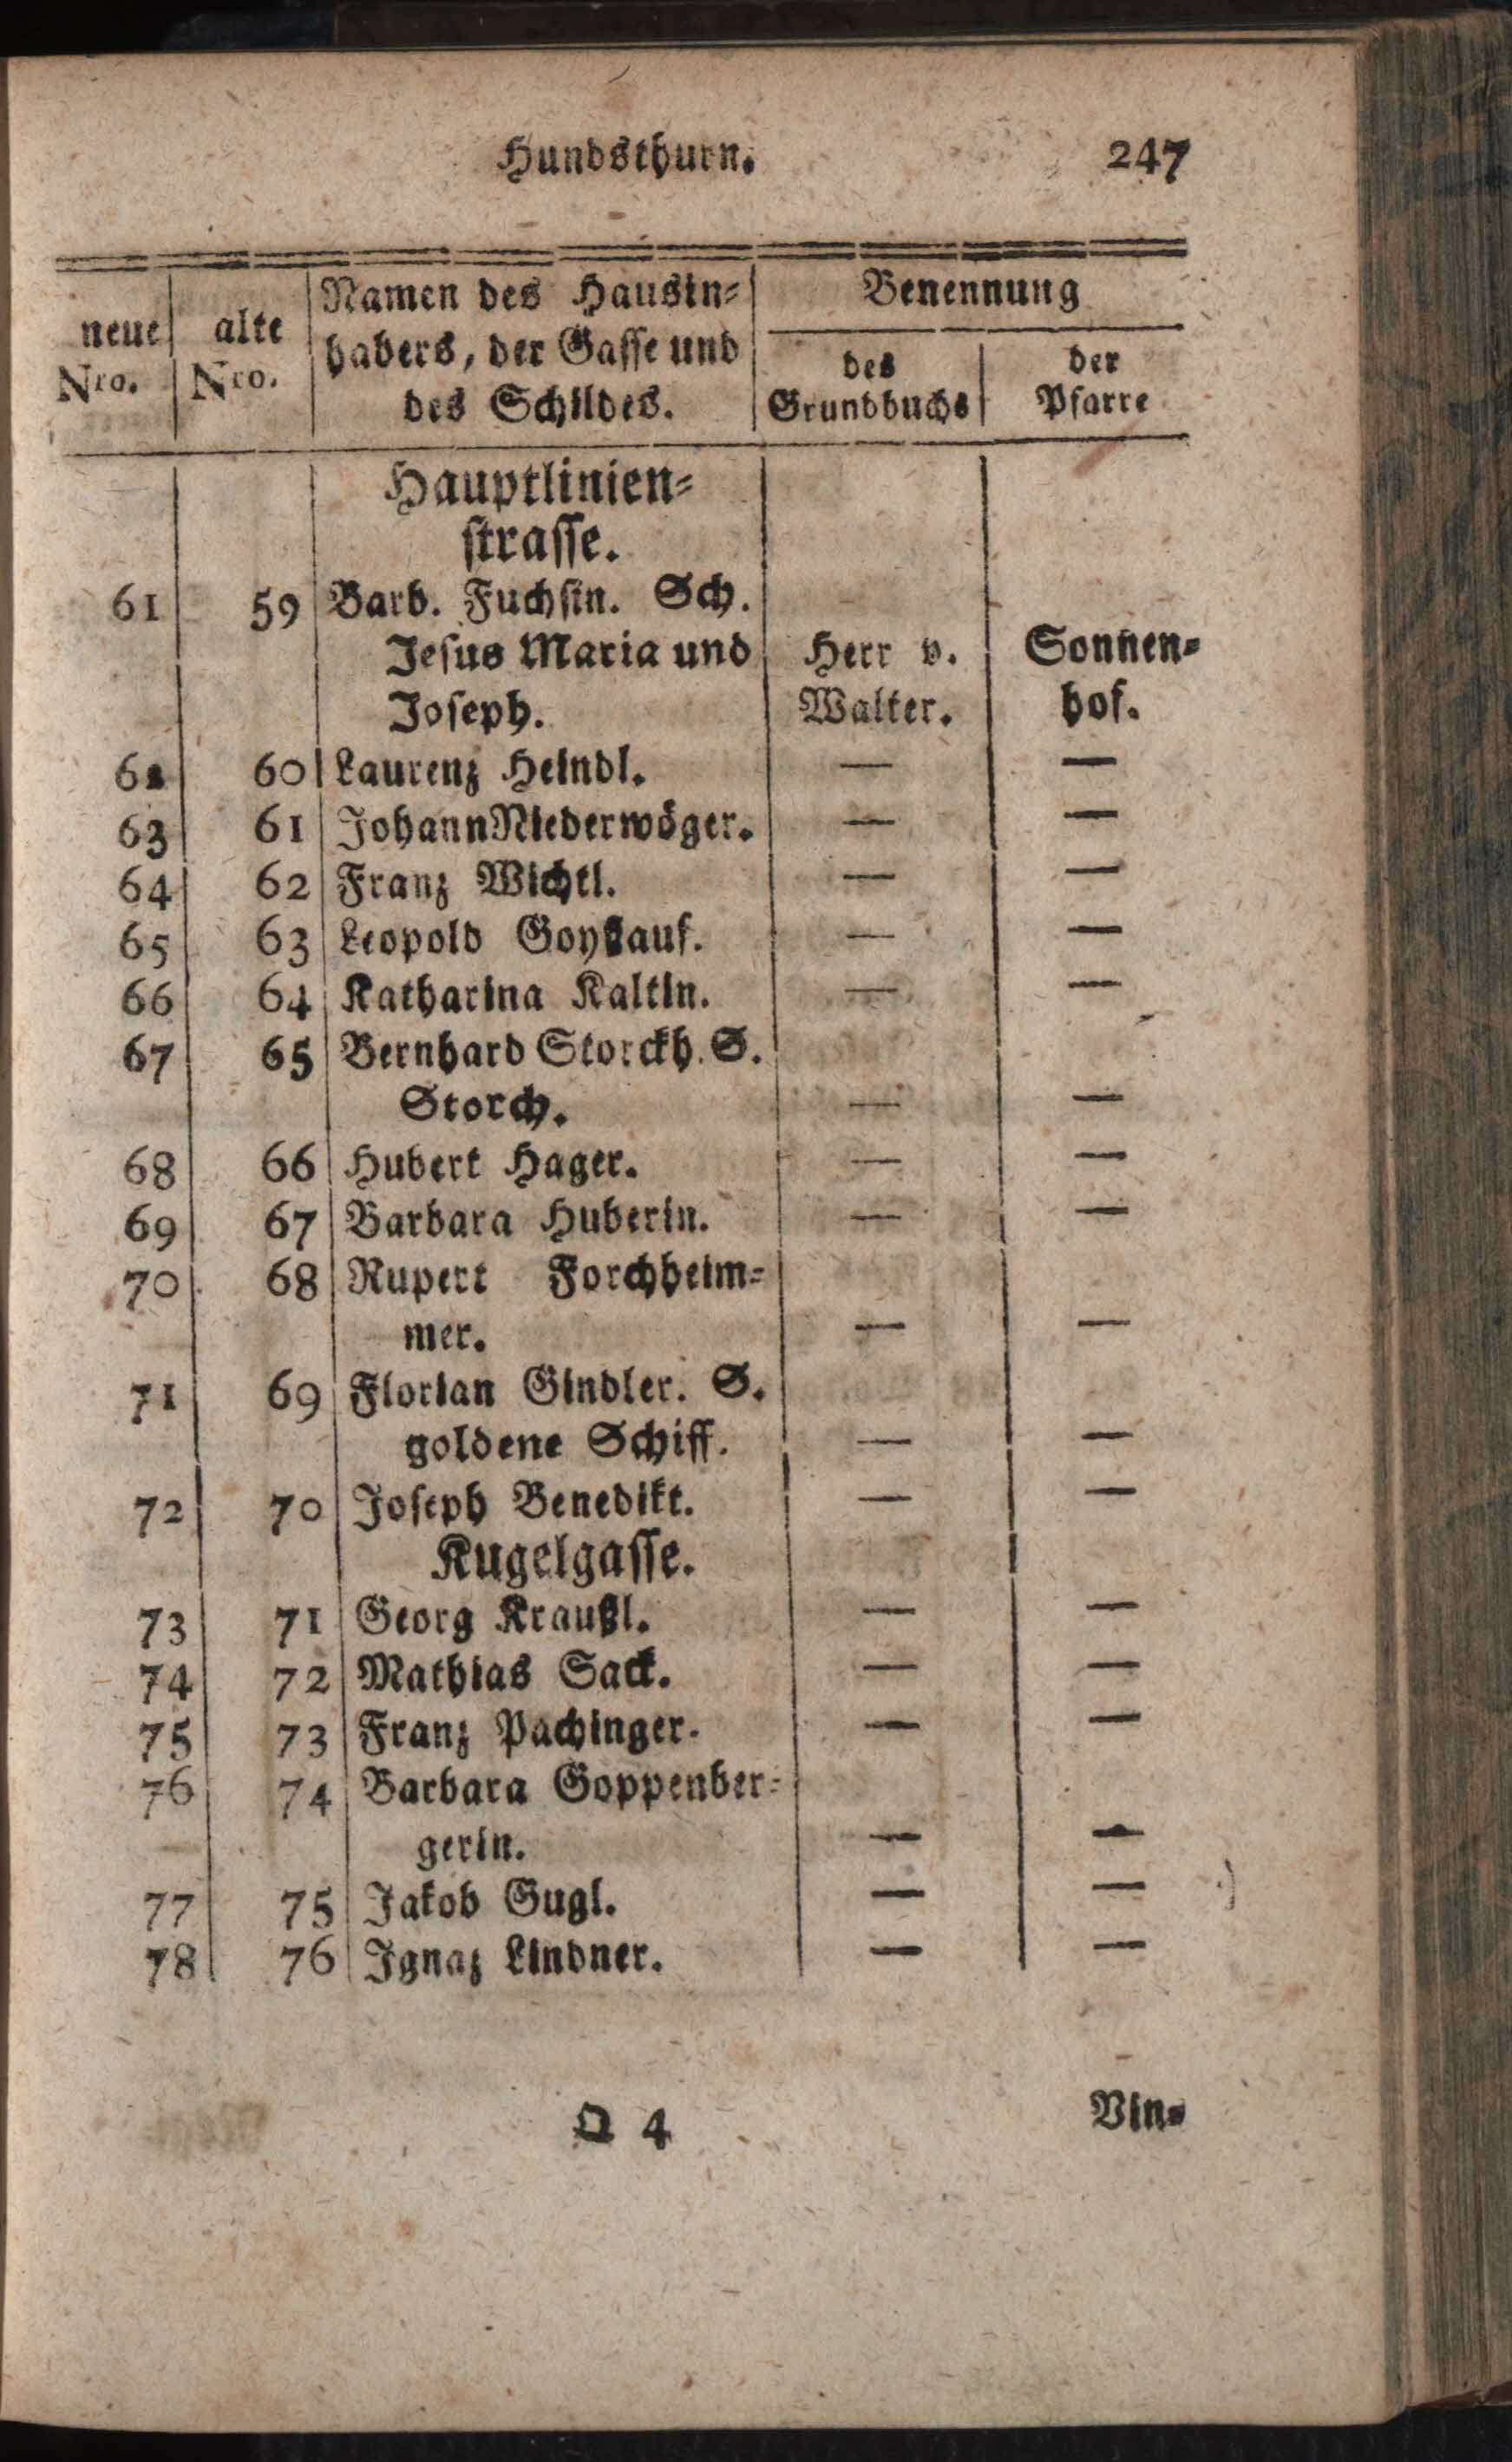 Hundsthurn. 247
neue Nro. | alte Nro. | Namen des Hausin⸗ | Benennung
habers, der Gasse und | des | der
des Schildes. | Grundbuchs | Pfarre
Hauptlinien⸗
strasse.
61 | 59 | Barb. Fuchsin. Sch.
Jesus Maria und | Herr v. | Sonnen⸗
Joseph. | Walter. | hof.
62 | 60 | Laurenz Heindl. | — | —
63 | 61 | Johann Niederwöger. | — | —
64 | 62 | Franz Wichtl. | — | —
65 | 63 | Leopold | — | —
66 | 64 | Katharina Kaltin. | — | —
67 | 65 | Bernhard Storckh. S.
Storch. | — | —
68 | 66 | Hubert Hager. | — | —
69 | 67 | Barbara Huberin. | — | —
70 | 68 | Rupert Forchheim⸗
mer. | — | —
71 | 69 | Florian Gindler. S.
goldene Schiff. | — | —
72 | 70 | Joseph Benedikt. | — | —
Kugelgasse.
73 | 71 | Georg Kraußl. | — | —
74 | 72 | Mathias Sack. | — | —
75 | 73 | Franz Pachinger. | — | —
76 | 74 | Barbara Goppenber⸗
gerin. | — | —
77 | 75 | Jakob Gugl. | — | —
78 | 76 | Ignaz Lindner. | — | —
Q 4 Vin⸗